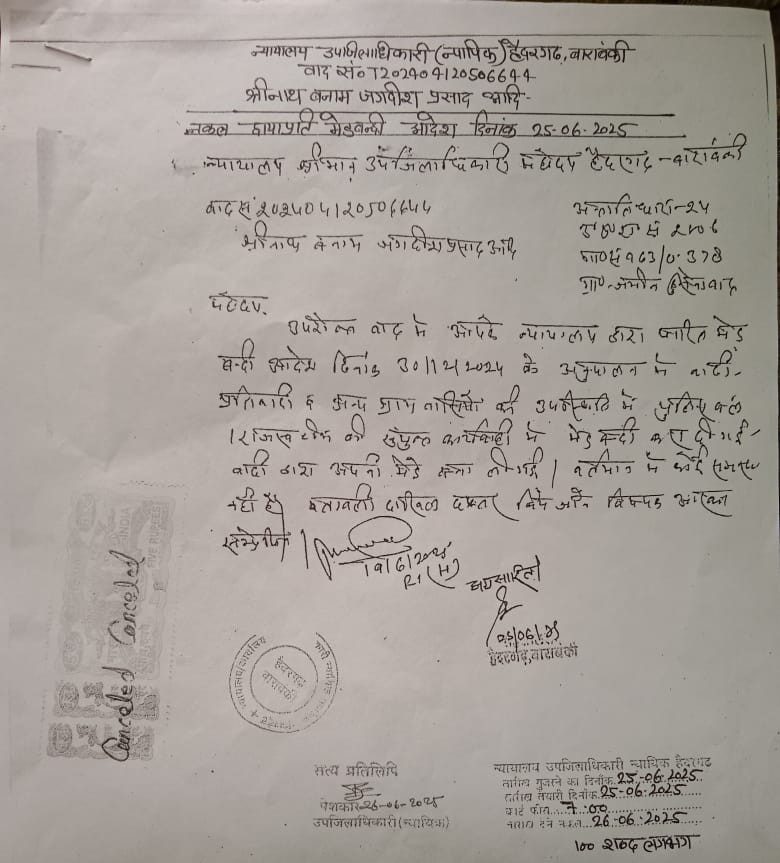 न्यायालय उपजिलाधिकारी (न्यायिक) हैदरगढ़, बाराबंकी
वाद सं० T202404120506644
श्रीनाथ बनाम जगदीश प्रसाद आदि-
नकल छायाप्रति मेडबन्दी आदेश दिनांक 25-06-2025
न्यायालय श्रीमान् उपजिलाधिकारी महोदय हैदरगढ़ - बाराबंकी
वाद सं 202404120506644
अन्तर्गत धारा-24
श्रीनाथ बनाम जगदीश प्रसाद आदि
उ०प्र०रा०सं 2006
गा०सं 963/0.378
महोदय,
उपरोक्त वाद में आपके न्यायालय द्वारा पारित मेड
बन्दी आदेश दिनांक 30/12/2024 के अनुपालन में वादी-
प्रतिवादी व अन्य ग्राम वासियों की उपस्थिति में पुलिस बल
/राजस्व टीम की संयुक्त कार्यवाही में मेड बन्दी करा दी गई
वादी द्वारा अपनी मेडे बना ली गई। वर्तमान में कोई समस्या
नही है। पत्रावली दाखिल दफ्तर किये जाने विषयक आख्या
सप्रेषित।
19/6/2025
RI (H)
अग्रसारित
25/06/25
हैदरगढ़, बाराबंकी
हैदरगढ़
बाराबंकी
Canceled Canceled
INDIA
FIVE RUPEES
सत्य प्रतिलिपि
पेशकार 26-06-2025
उपजिलाधिकारी (न्यायिक)
न्यायालय उपजिलाधिकारी न्यायिक हैदरगढ़
तारीख गुजरने का दिनांक 25-06-2025
तारीख तैयारी दिनांक 25-06-2025
कोर्ट फीस 7:00
तारीख देने नकल 26-06-2025
100 शब्द लगभग